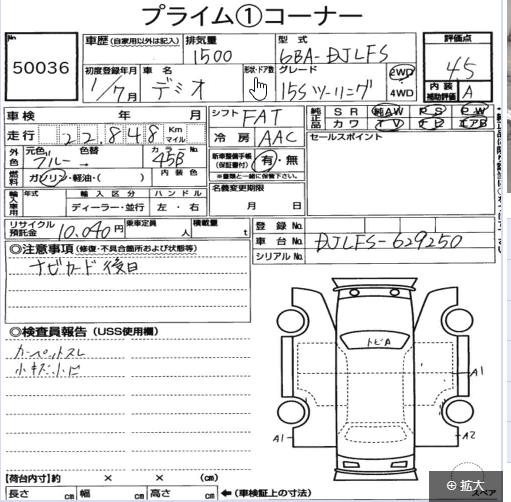 プライム①コーナー
No
50036
車歴（自家用以外は記入）
排気量
1500
型式
6BA-DJLFS
評価点
4.5
初度登録年月
1/7月
車名
デミオ
形状・ドア数
グレード
15Sツーリング
2WD
4WD
内装補助評価
A
車検 年 月
シフト
FAT
純正品
SR 純AW PS PW
カワ TV ナビ エアB
走行
22,848
Km
マイル
冷房
AAC
セールスポイント
外色
元色
ブルー
色替
→
カラーNo.
45B
新車整備手帳（保証書付）
有・無
※書類と一緒に保管下さい。
燃料
ガソリン・軽油・（ ）
内装色
名義変更期限
月 日
輸入車用
年式
輸入区分
ハンドル
ディーラー・並行
左・右
リサイクル預託金
10,040円
乗車定員
人
積載量
t
登録No.
車台No.
DJLFS-629250
シリアルNo.
◎注意事項（修復・不具合箇所および状態等）
ナビカード後日
◎検査員報告（USS使用欄）
カーペットスレ
小キズ小ヒ
トビA
A1
A1
A2
【荷台内寸】約 × × （cm）
長さ cm 幅 cm 高さ cm
←（車検証上の寸法）
スペア
拡大